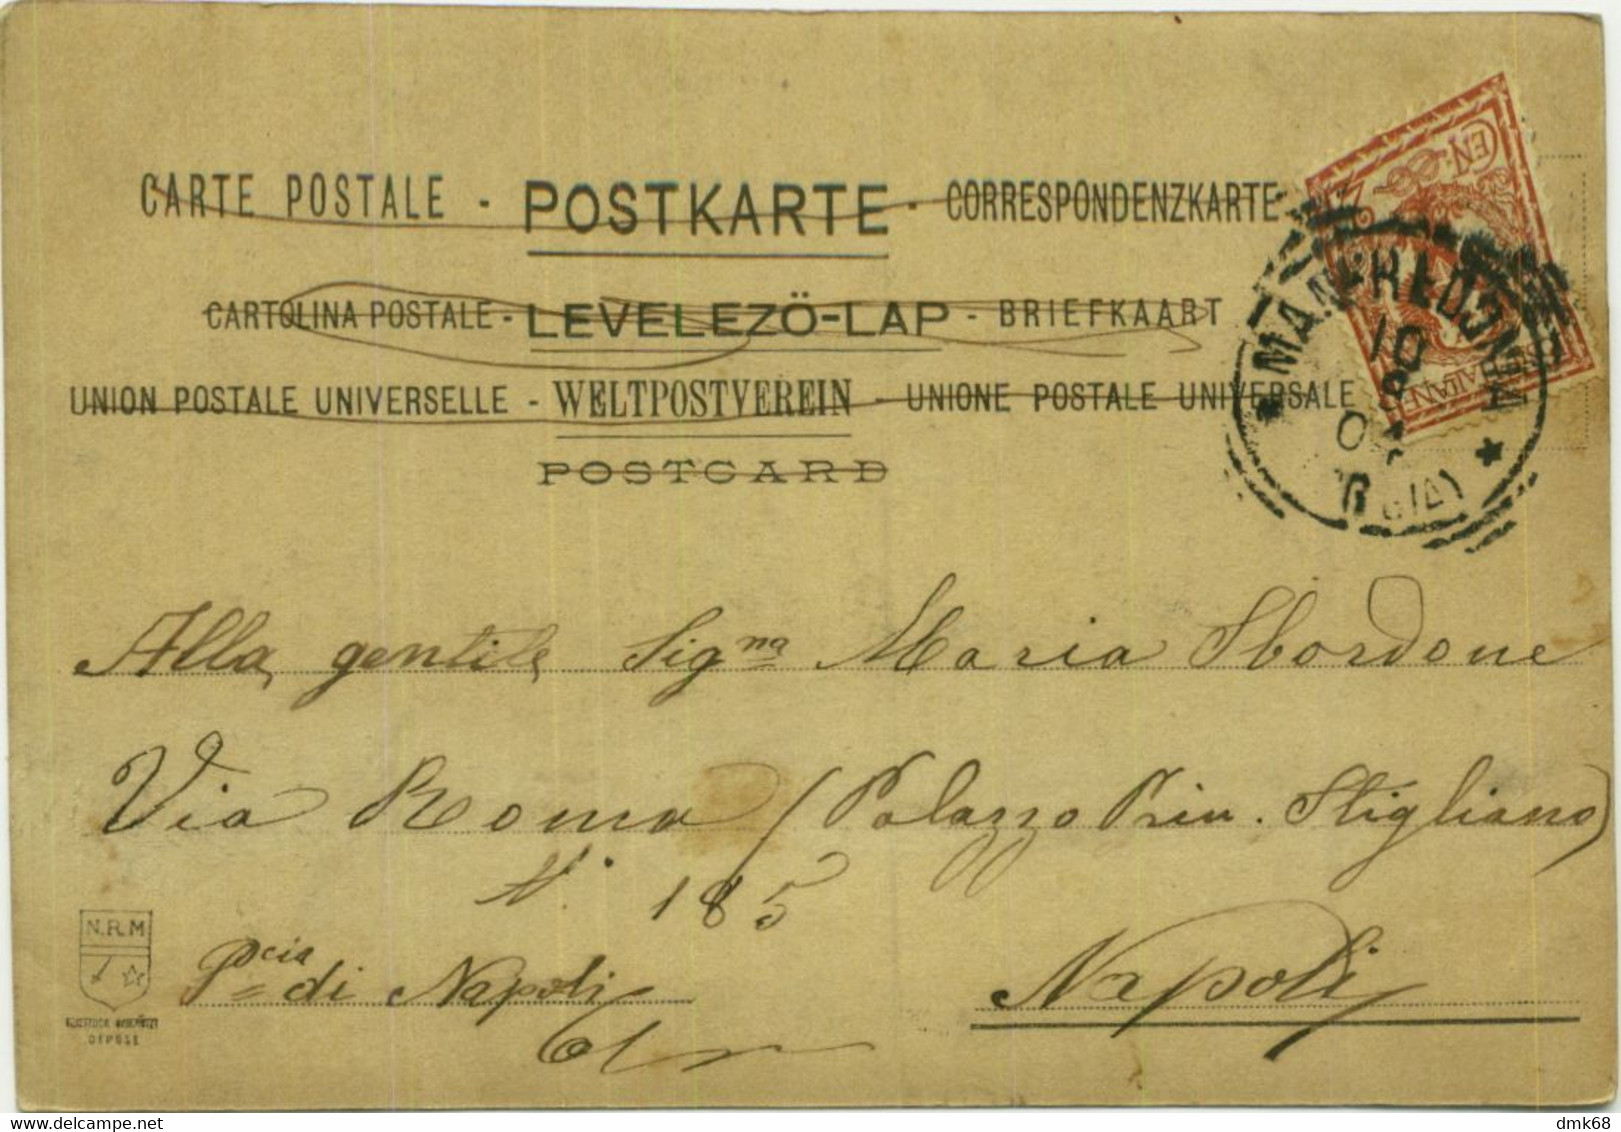 CARTE POSTALE - POSTKARTE - CORRESPONDENZKARTE
CARTOLINA POSTALE - LEVELEZÖ-LAP - BRIEFKAART
UNION POSTALE UNIVERSELLE - WELTPOSTVEREIN - UNIONE POSTALE UNIVERSALE
POSTCARD
CEN. 2
MANFREDONIA
10
Alla gentile Signa Maria Sbordone
Via Roma (Palazzo Prin. Stigliano)
N. 185
Pcia di Napoli
Napoli
N.R.M
DEPOSE
dmk68